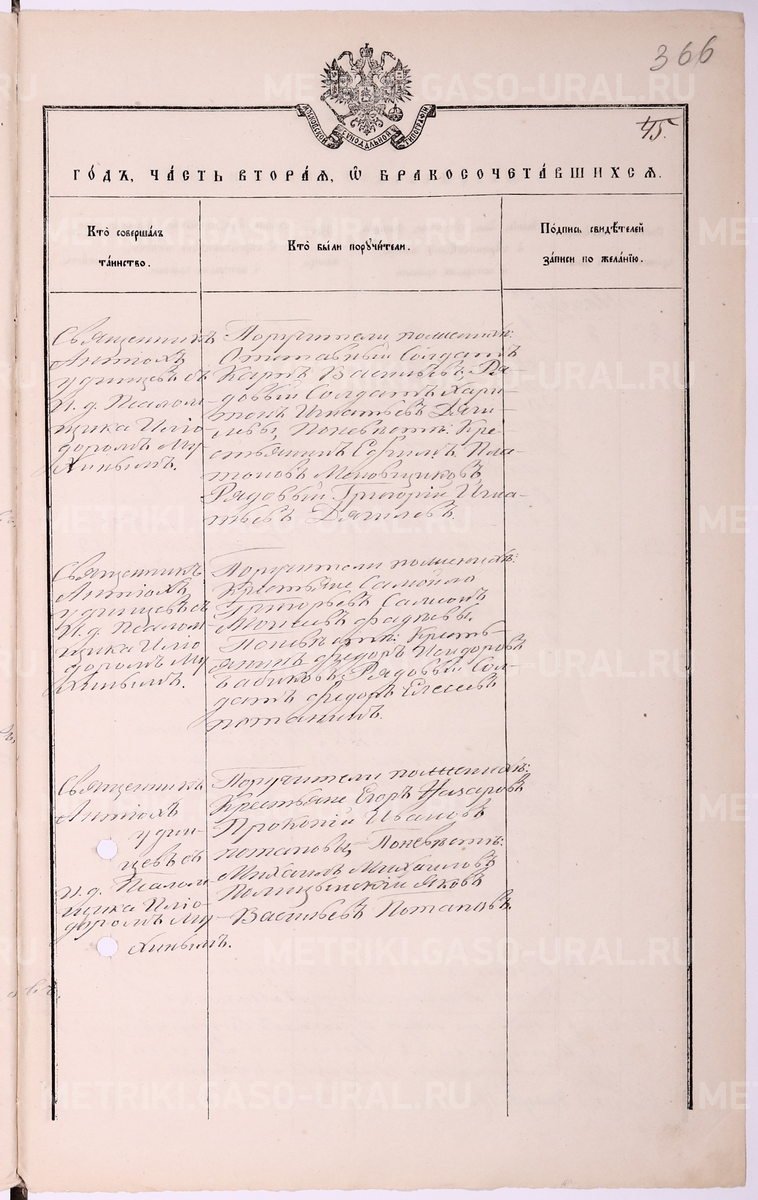 366
45.
МОСКОВСКОЙ СѴНОДАЛЬНОЙ ТИПОГРАФІИ
ГОДЪ, ЧАСТЬ ВТОРАЯ, Ѽ БРАКОСОЧЕТАВШИХСЯ.
Кто совершалъ
таинство.
Кто были поручители.
Подпись свидѣтелей
записи по желанію.
Священникъ
Антіохъ
Удинцевъ съ
И. д. Псалом-
щика Иліо-
доромъ Му-
хинымъ.
Поручители по женихѣ:
Отставный Солдатъ
Васильевъ, Ря-
довый Солдатъ Хари-
тонъ Игнатьевъ Дяги-
левы, По невѣстѣ: Кре-
стьянинъ Ефимъ Пла-
тоновъ Меновщиковъ
Рядовый Григорій Игна-
тьевъ Дягилевъ.
Священникъ
Антіохъ
Удинцевъ съ
И. д. Псалом-
щика Иліо-
доромъ Му-
хинымъ.
Поручители по женихѣ:
Крестьяне Самойло
Григорьевъ Самсонъ
Моисеевъ Фадѣевы.
По невѣстѣ: Кресть-
янинъ Федоръ Исидоровъ
Бабиковъ, Рядовый Сол-
датъ Федоръ Елесеевъ
Потанинъ.
Священникъ
Антіохъ
Удин-
цевъ съ
И. д. Псалом-
щика Иліо-
доромъ Му-
хинымъ.
Поручители по женихѣ:
Крестьяне Егоръ Назаровъ
Прокопій Ивановъ
Потаповы, По невѣстѣ:
Михаилъ Михаиловъ
Яковъ
Васильевъ Потаповъ.
METRIKI.GASO-URAL.RU